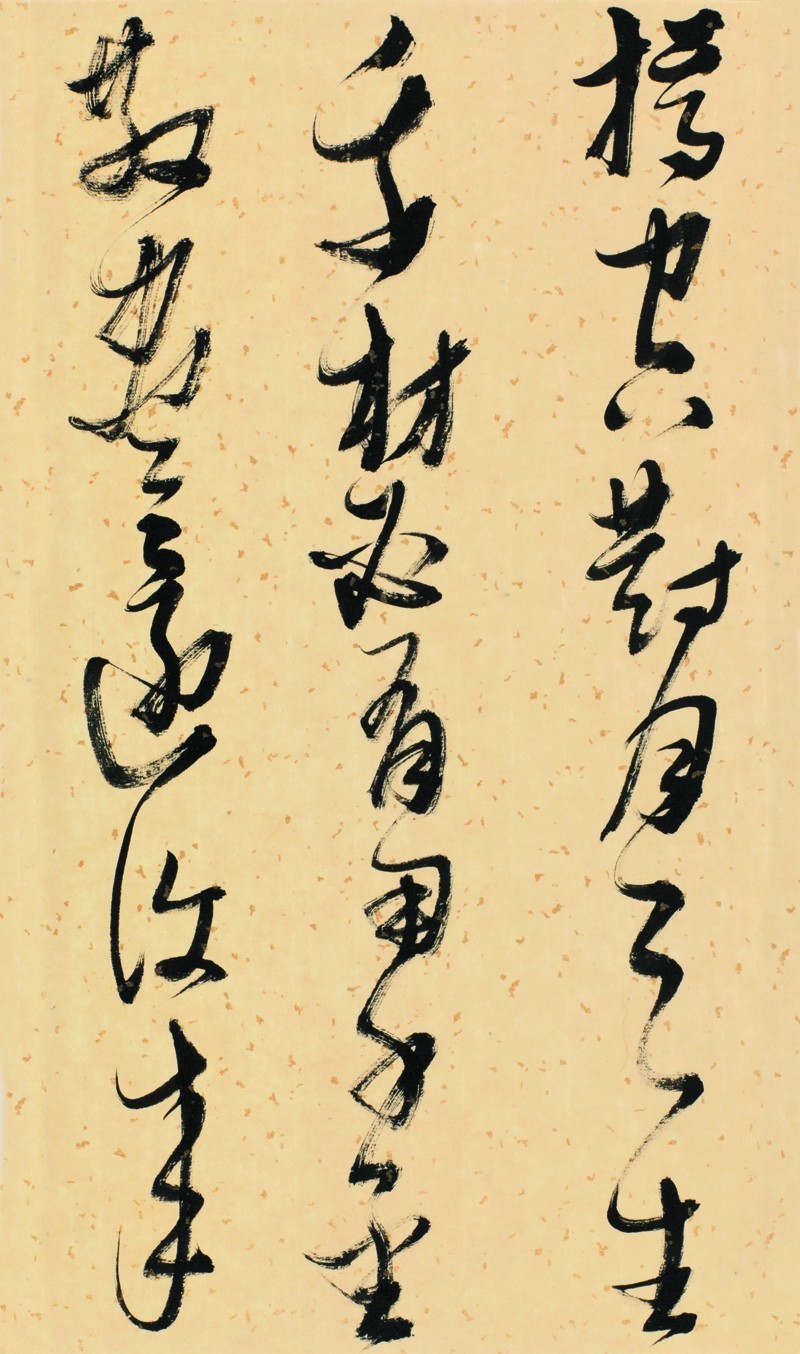 樽空對月天生
我材必有用千金
散盡還復來